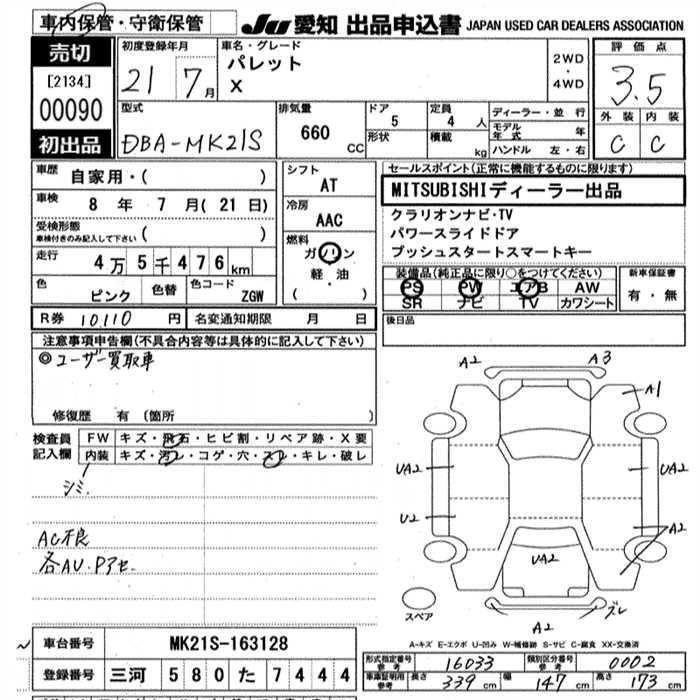 車内保管・守衛保管
JU 愛知 出品申込書 JAPAN USED CAR DEALERS ASSOCIATION
売切
[2134]
00090
初出品
初度登録年月
21 7月
車名・グレード
パレット
X
2WD
・
4WD
評価点
3.5
外装 内装
C C
型式
DBA-MK21S
排気量
660 CC
ドア 5
形状
定員 4 人
積載 kg
ディーラー・並行
モデル年式 年
ハンドル 左・右
車歴 自家用・( )
車検 8 年 7 月( 21 日)
受検形態
車検付きのみ記入して下さい ( )
走行 4万5千476km
色 ピンク 色替 色コード ZGW
シフト AT
冷房 AAC
燃料 ガソリン
軽・油
( )
セールスポイント(正常に機能するものに限ります)
MITSUBISHIディーラー出品
クラリオンナビ・TV
パワースライドドア
プッシュスタートスマートキー
装備品(純正品に限り○をつけてください)
PS PW エアB AW
SR ナビ TV カワシート
新車保証書
有・無
R券 10,110 円 名変通知期限 月 日
後日品
注意事項申告欄(不具合内容等は具体的に記入して下さい)
◎ユーザー買取車
修復歴 有 (箇所 )
検査員記入欄
FW キズ・飛石・ヒビ割・リペア跡・X要
内装 キズ・汚レ・コゲ・穴・スレ・キレ・破レ
シミ
AC不良
各AU.Pアセ
A2 A3
A1
UA2 UA2
U2 A2
UA2
スペア
A2 ズレ
A-キズ E-エクボ U-凹み W-補修跡 S-サビ C-腐食 XX-交換済
車台番号 MK21S-163128
登録番号 三河 580 た 7444
形式指定番号 参考 16033 類別区分番号 参考 0002
車庫証明用 参考 長さ 339 cm 幅 147 cm 高さ 173 cm